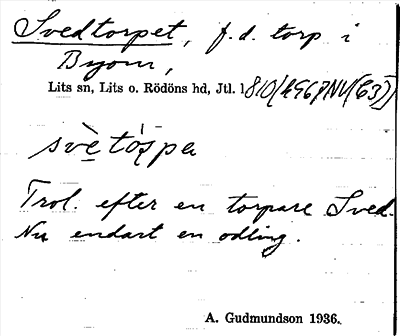 Svedtorpet, f.d. torp i
Byom,
Lits sn, Lits o. Rödöns hd, Jtl.
svè̱tó̱spa
Trol. efter en torpare Sved.
Nu endast en odling.
A. Gudmundson 1936.